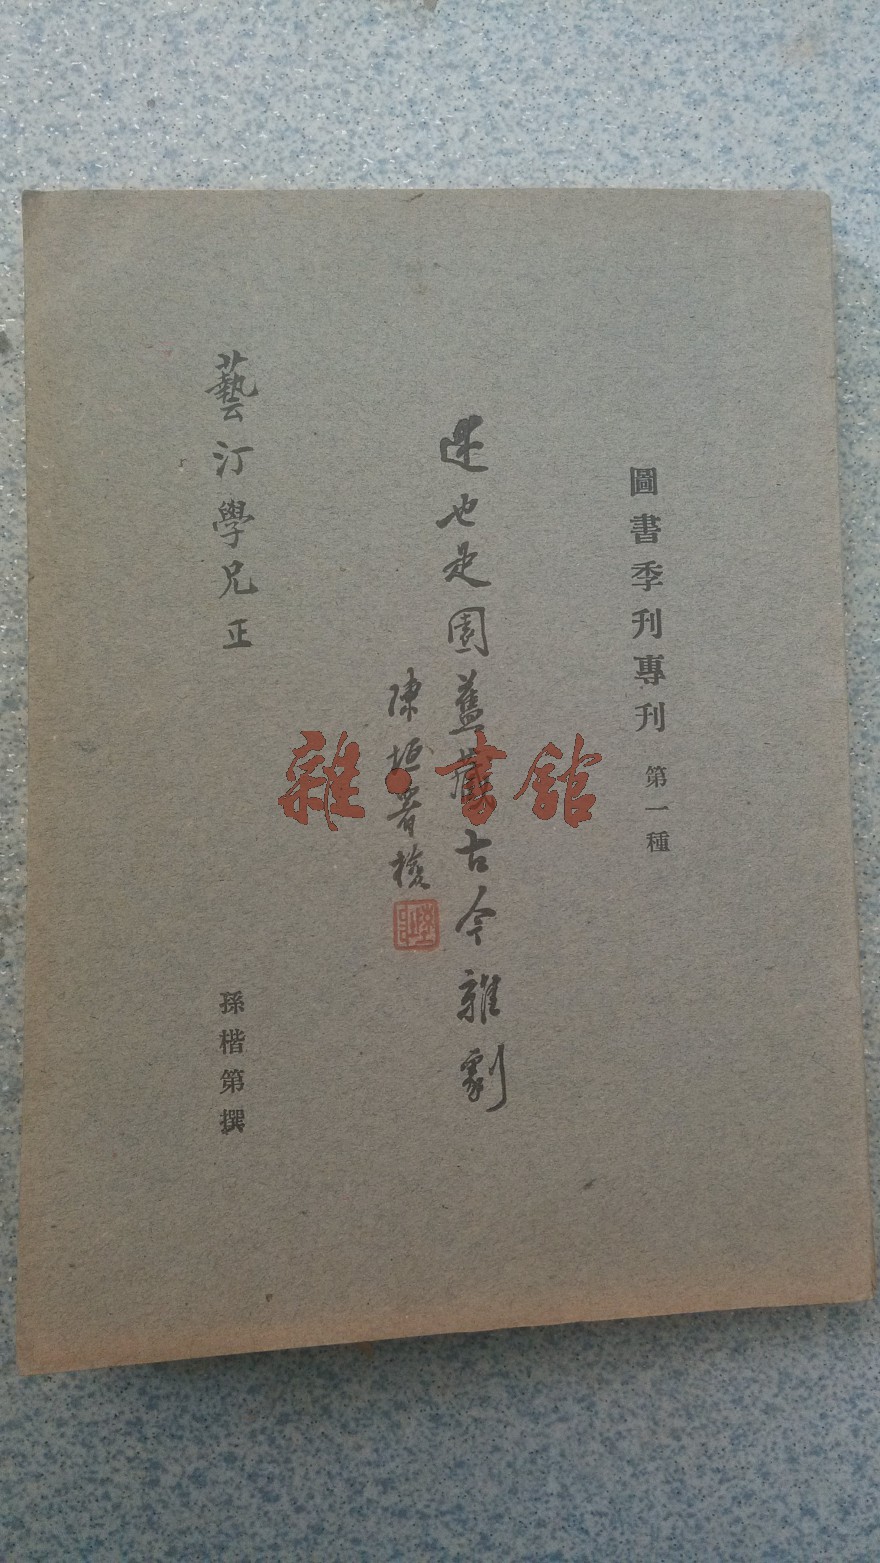 圖書季刊專刊 第一種
述也是園舊藏古今雜劇
陳垣署檢
藝汀學兄正
孫楷第撰
雜·書館